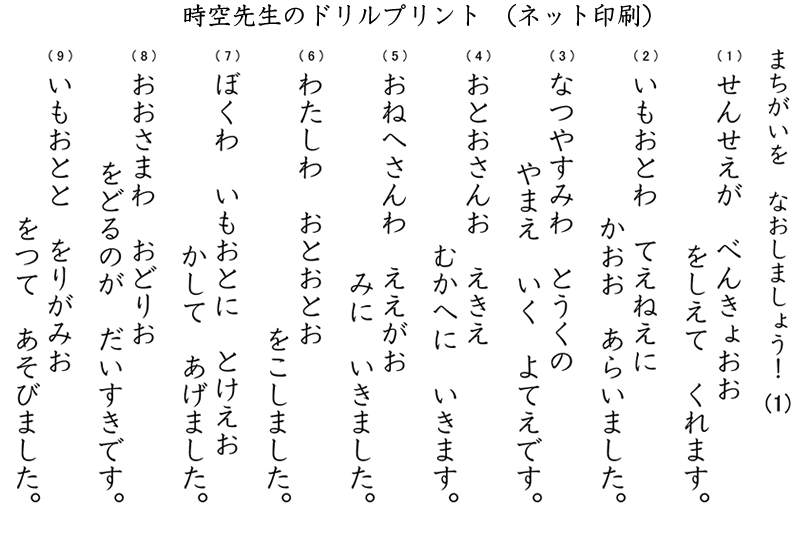 時空先生のドリルプリント （ネット印刷）
まちがいを なおしましょう！ (1)
(1) せんせえが べんきょおお
をしえて くれます。
(2) いもおとわ てえねえに
かおお あらいました。
(3) なつやすみわ とうくの
やまえ いく よてえです。
(4) おとおさんお えきえ
むかへに いきます。
(5) おねへさんわ ええがお
みに いきました。
(6) わたしわ おとおとお
をこしました。
(7) ぼくわ いもおとに とけえお
かして あげました。
(8) おおさまわ おどりお
をどるのが だいすきです。
(9) いもおとと をりがみお
をつて あそびました。